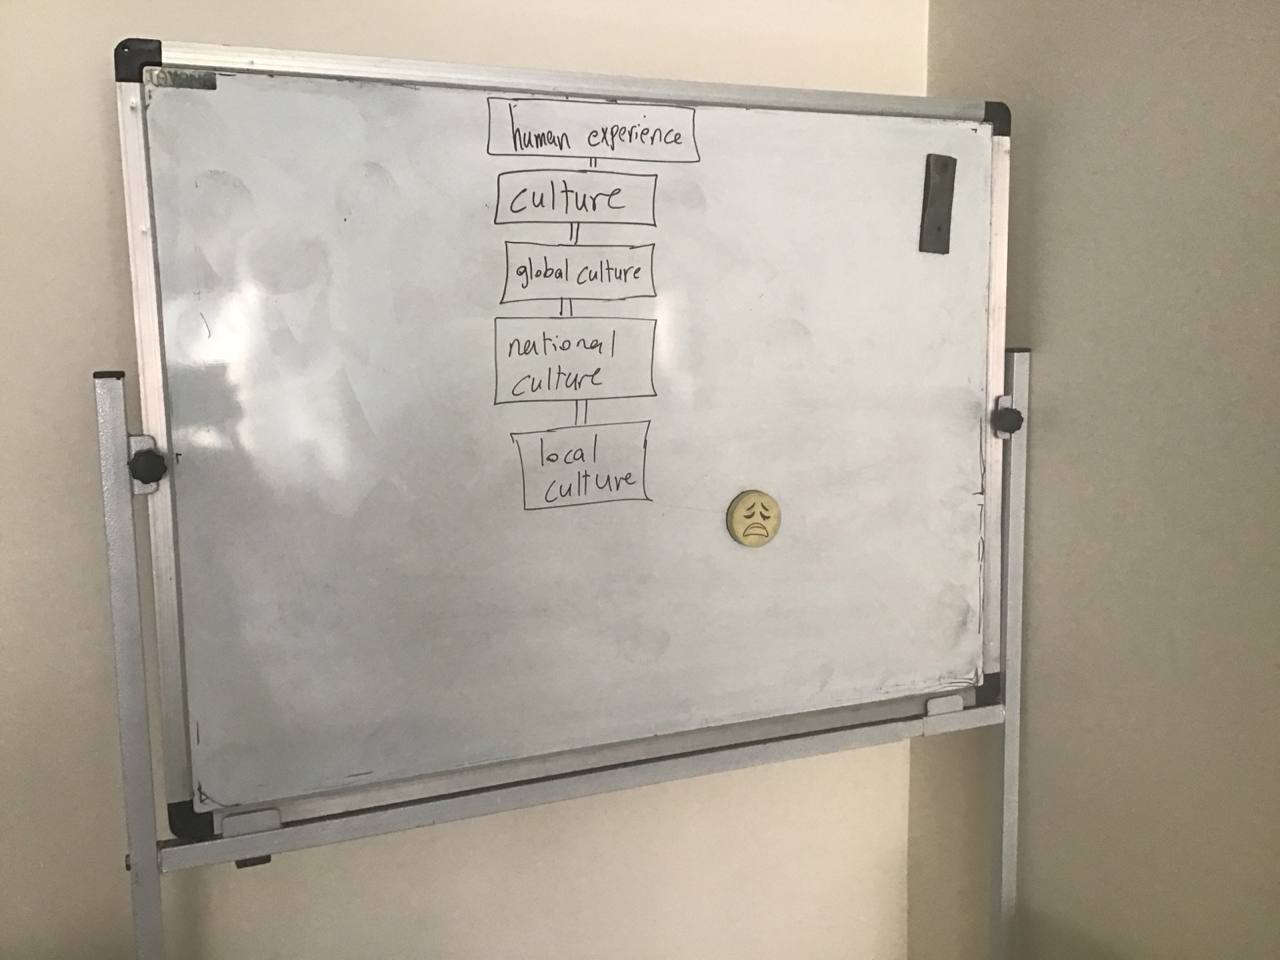 human experience
culture
global culture
national
culture
local
culture